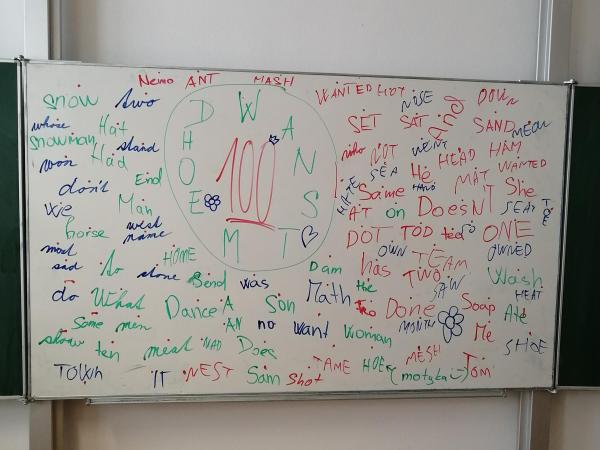 Nemo ANT MASH
WANTED HOT NOISE DOWN
snow two
D W A N S T M E O H
100
SET SAT And SAND MEOW
whose Hat
snowman stand
won Had
who NOT WENT HEAD HAM
SEA He MAT WANTED
don't End
HATE Same HAND She
We Man
AT on DOESN'T SEAT TOE
horse west
name
DOT TOD ted SO ONE
most
sad to stone HOME
OWN OWNED
Dam has TEAM
do What Send was
Math the TWO SAW Wash
HEAT
Dance A Son
Done Soap Ate
Some men AN no want woman MONTH Me
show ten meat NAD Does
MESH SHOE
TOWN IT NEST Sam shot TAME HOE (motyka :-) Tom